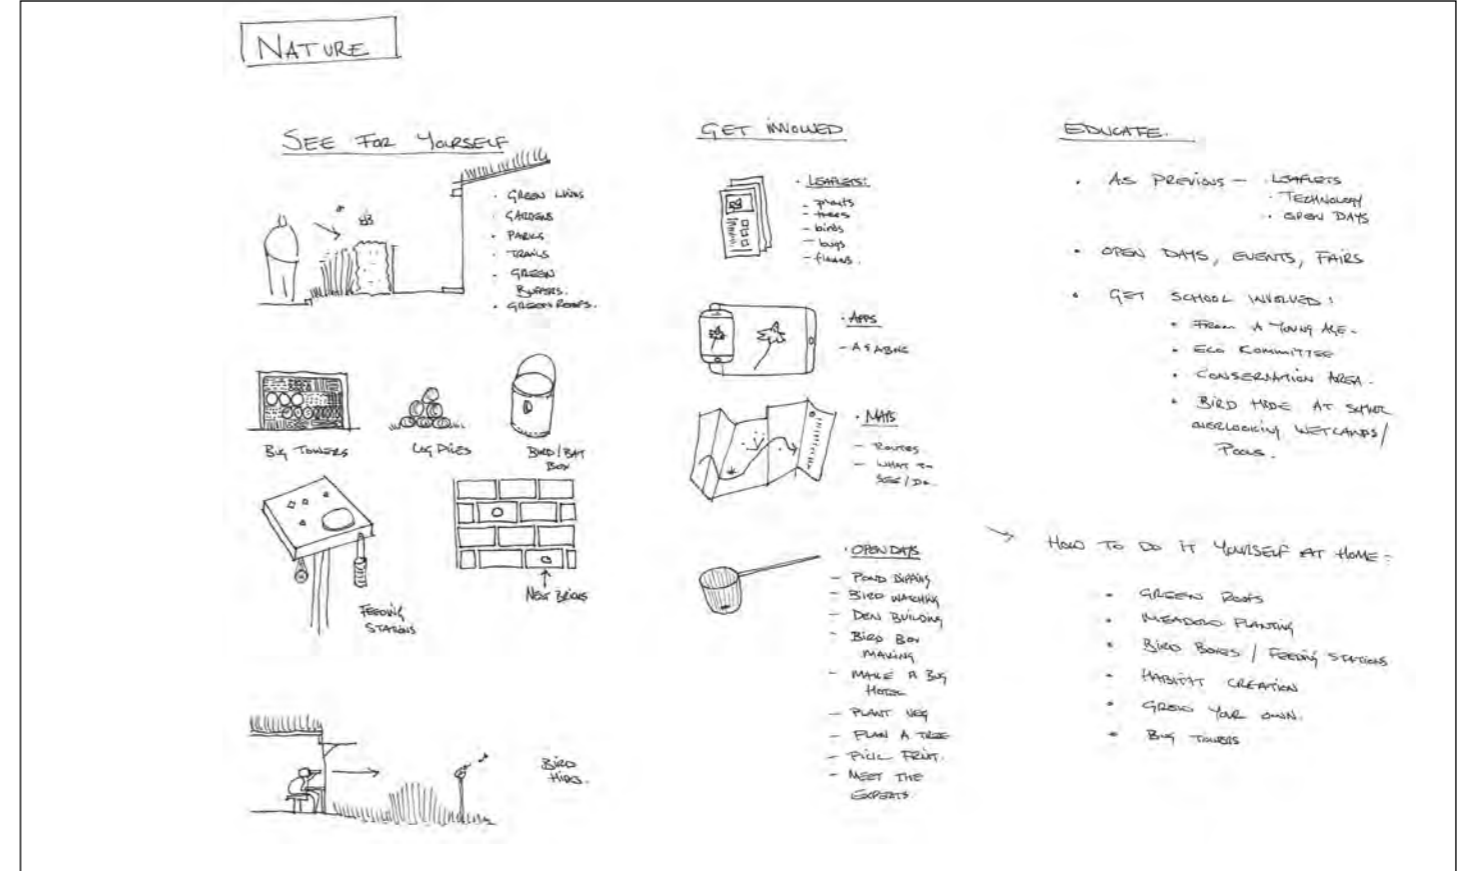 NATURE
SEE FOR YOURSELF
· GREEN LINKS
· GARDENS
· PARKS
· TRAILS
· GREEN
BUFFERS.
· GREEN ROOFS.
BUG TOWERS
LOG PILES
BIRD/BAT
BOX
FEEDING
STATIONS
NEST BRICKS
BIRD
HIDES.
GET INVOLVED
· LEAFLETS:
- plants
- trees
- birds
- bugs
- flowers.
· APPS
- AS ABOVE
· MAPS
- ROUTES
- WHAT TO
SEE/DO.
· OPEN DAYS
- POND DIPPING
- BIRD WATCHING
- DEN BUILDING
- BIRD BOX
MAKING
- MAKE A BUG
HOTEL
- PLANT VEG
- PLAN A TREE
- PICK FRUIT.
- MEET THE
EXPERTS
EDUCATE.
· AS PREVIOUS - · LEAFLETS
· TECHNOLOGY
· OPEN DAYS
· OPEN DAYS, EVENTS, FAIRS
· GET SCHOOL INVOLVED:
· FROM A YOUNG AGE.
· ECO KOMMITTEE
· CONSERVATION AREA.
· BIRD HIDE AT SCHOOL
OVERLOOKING WETLANDS/
POOLS.
→ HOW TO DO IT YOURSELF AT HOME:
· GREEN ROOFS
· MEADOW PLANTING
· BIRD BOXES / FEEDING STATIONS
· HABITAT CREATION
· GROW YOUR OWN.
· BUG TOWERS